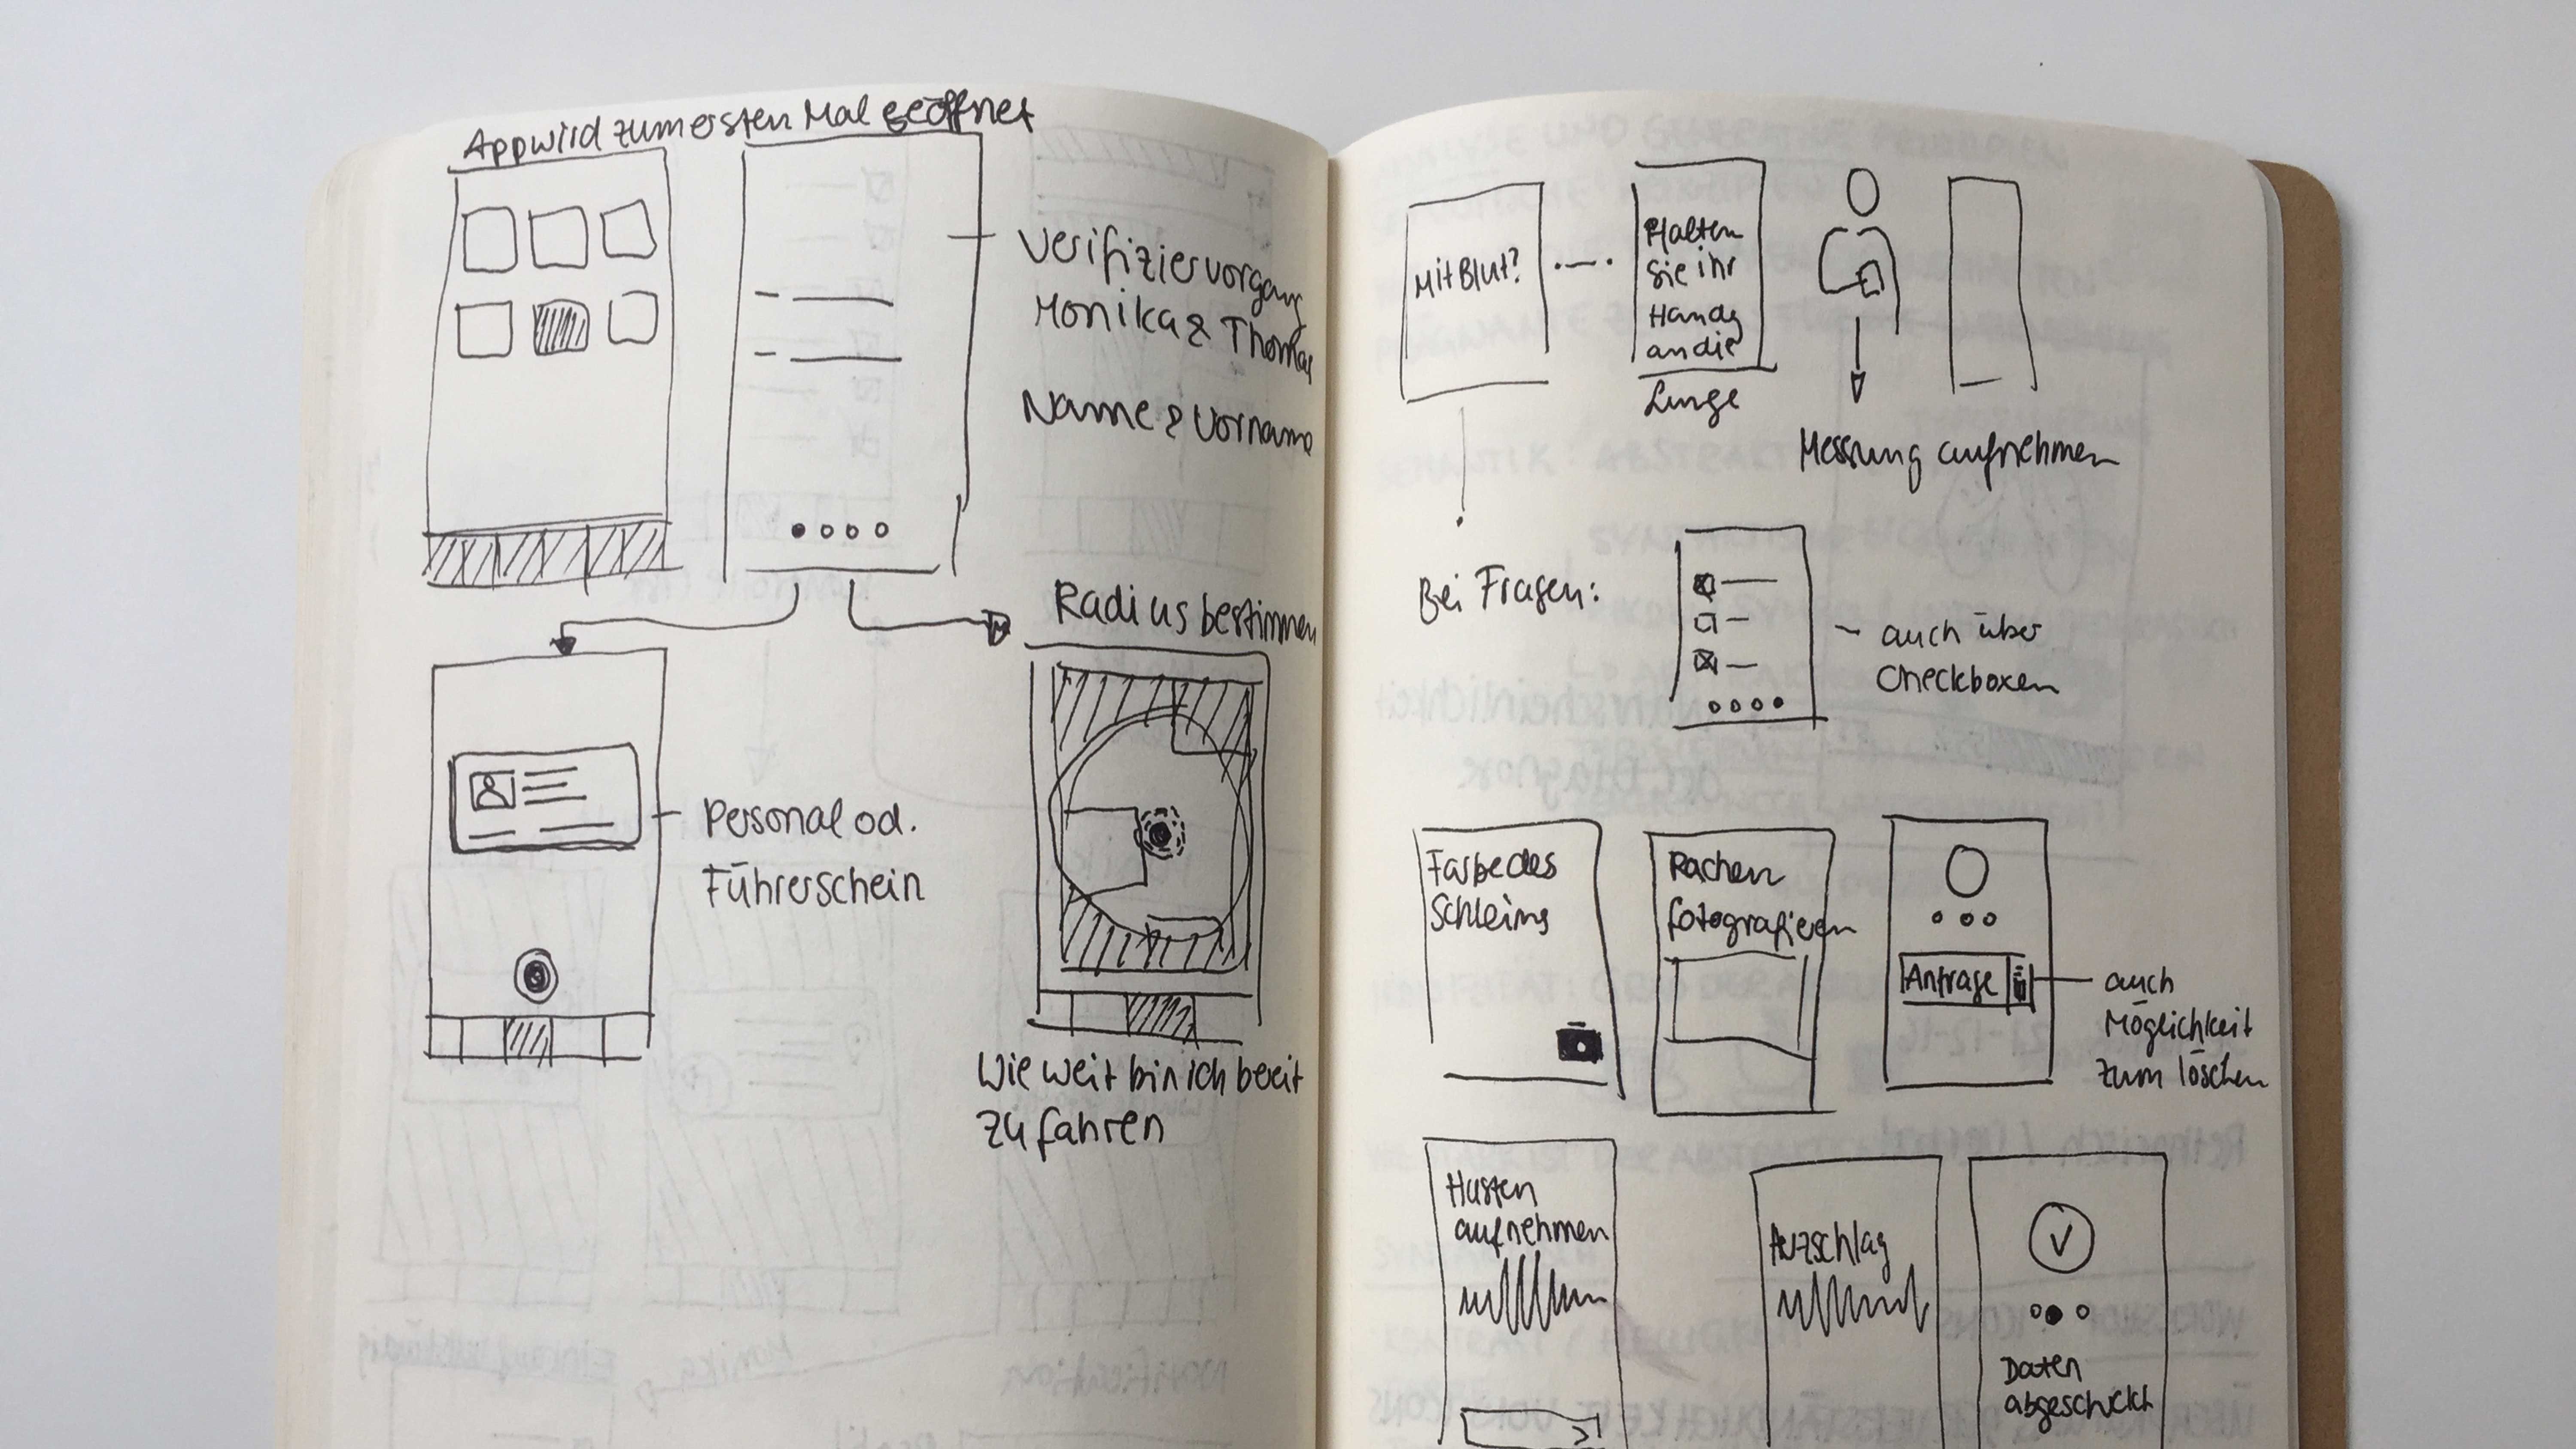 App wird zum ersten Mal geöffnet
Verifiziervorgang
Monika & Thomas
Name & Vorname
Radius bestimmen
Personal od.
Führerschein
Wie weit bin ich bereit
zu fahren
Mit Blut?
Halten
Sie ihr
Handy
an die
Lunge
Messung aufnehmen
Bei Fragen:
auch über
Checkboxen
Farbe des
Schleims
Rachen
fotografieren
Anfrage
auch
Möglichkeit
zum löschen
Husten
aufnehmen
Daten
abgeschickt